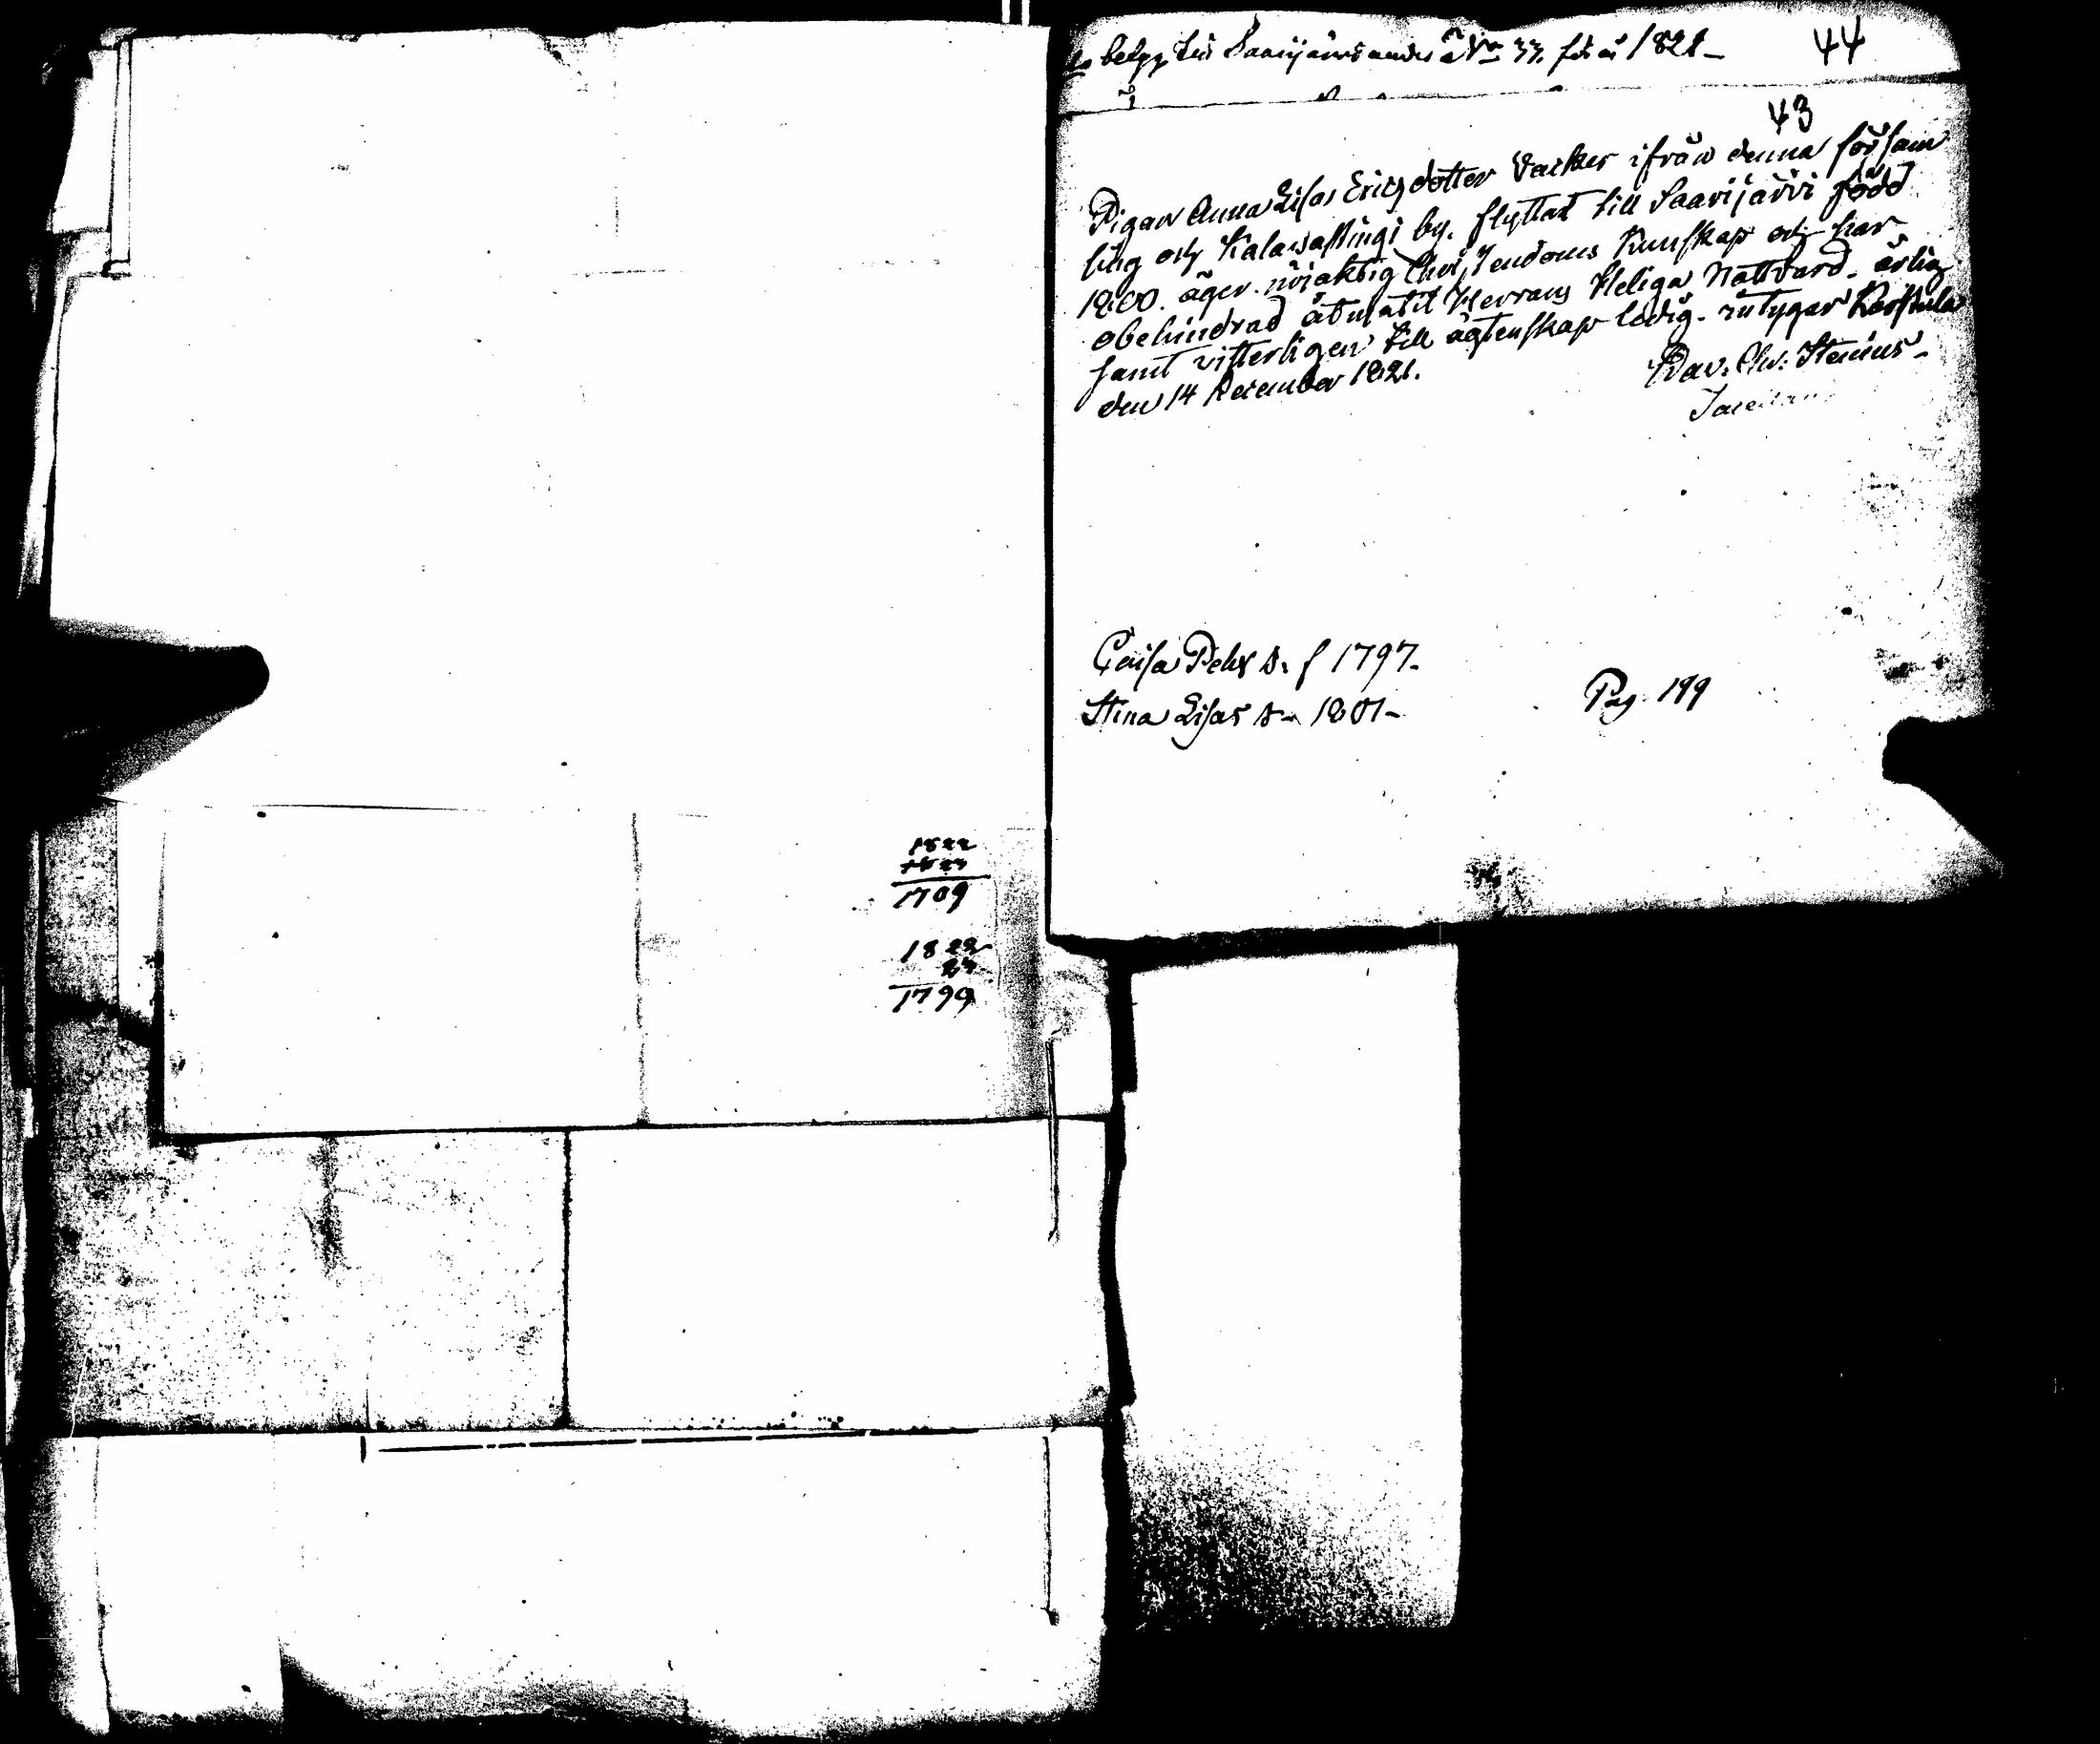 1822
1709
1822
23
1799
44
43
Pigan Anna Lisa Ericsdotter Vacker ifrån denna församl
ling och Kalawassingi by. flyttat till Saarijärvi född
1800. äger nöjaktig Christendoms kunskap och har
obehindrad åtnjutit Herrans Heliga Nattvard. ärlig
samt vitterligen till ägtenskap ledig. intygar Karstula
den 14 December 1821.
Dav. Chr. Stenius.
Caisa Pehrs D. f 1797.
Stina Lisa D 1801
Pag. 199